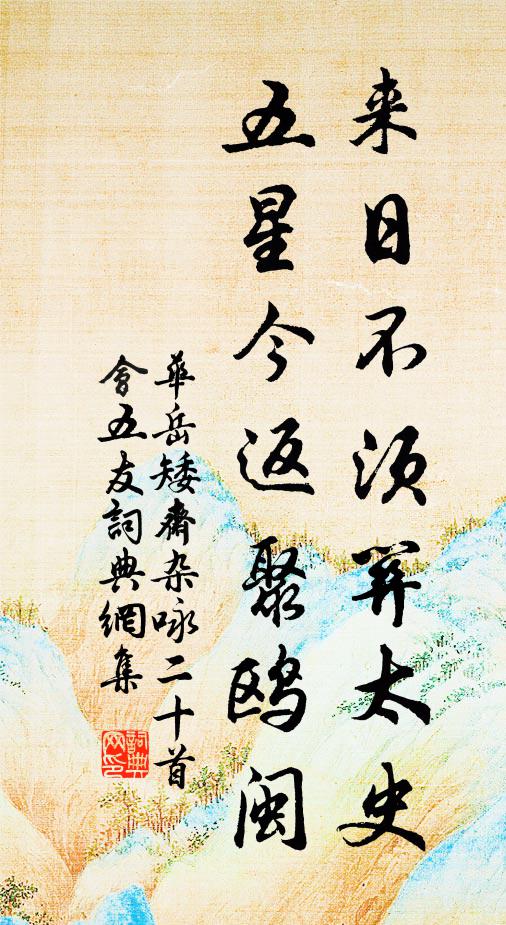 来日不須筭太史
五星今返聚鸥闽
華岳矮齋杂咏二十首
會五友詞典網集
詞典
网印